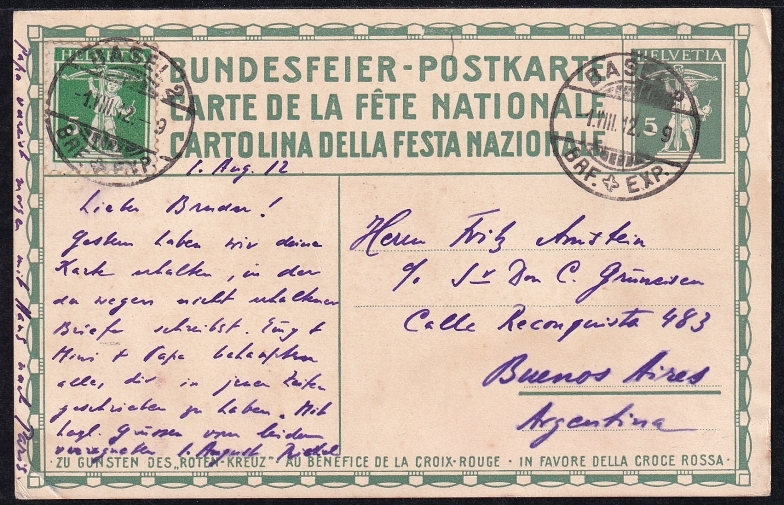 BUNDESFEIER-POSTKARTE
CARTE DE LA FÊTE NATIONALE
CARTOLINA DELLA FESTA NAZIONALE
HELVETIA
5
BASEL 2
-1.VIII.12.-9
BRF. EXP.
HELVETIA
5
BASEL 2
-1.VIII.12.-9
BRF. EXP.
1. Aug. 12
Lieber Bruder!
Gestern haben wir deine
Karte erhalten, in der
du wegen nicht erhaltener
Briefe schreibst.
Mimi + Papa behaupten
alles, dir in jenen Zeiten
geschrieben zu haben. Mit
herzl. Grüssen vom
1. August
Papa verreist morgen mit Hans nach Paris.
Herrn Fritz Amstein
c/o Sr Don C. Grüneisen
Calle Reconquista 483
Buenos Aires
Argentina
ZU GUNSTEN DES „ROTEN-KREUZ" · AU BÉNÉFICE DE LA CROIX-ROUGE · IN FAVORE DELLA CROCE ROSSA